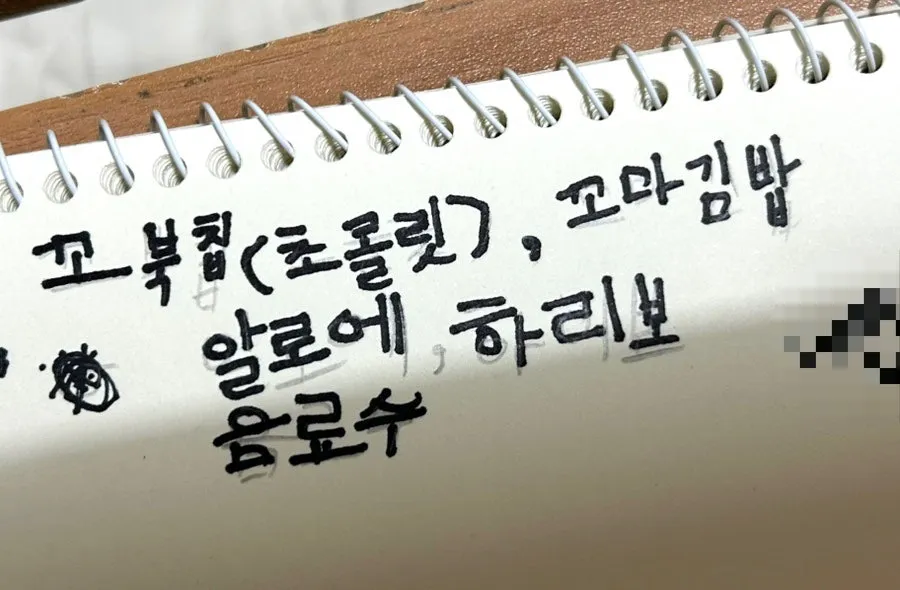 꼬북칩(초콜릿), 꼬마김밥
알로에, 하리보
음료수